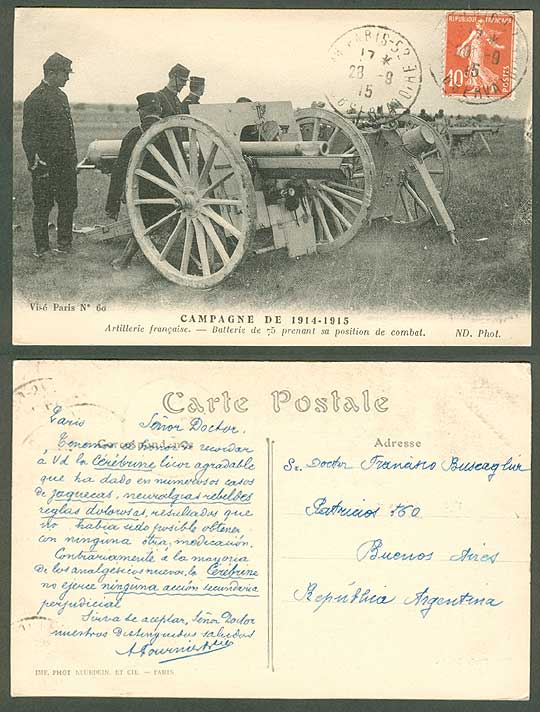 REPUBLIQUE FRANÇAISE
10
POSTES
PARIS-52
17 *
28-9
15
Visé Paris Nº 60
CAMPAGNE DE 1914-1915
Artillerie française. — Batterie de 75 prenant sa position de combat. ND. Phot.
Carte Postale
Correspondance
Adresse
Paris Señor Doctor.
Tenemos el honor de recordar
á Vd la Cérébrine licor agradable
que ha dado en numerosos casos
de jaquecas, neuralgias rebeldes
reglas dolorosas, resultados que
no habia sido posible obtener
con ninguna otra medicación.
Contrariamente á la mayoria
de los analgésicos nuevos, la Cérébrine
no ejerce ninguna acción secundaria
perjudicial
Sirva se aceptar, Señor Doctor
nuestros Distinguidos saludos
Sr. Doctor Francisco Buscaglia
Patricios 160
Buenos Aires
República Argentina
IMP. PHOT NEURDEIN. ET CIE. — PARIS